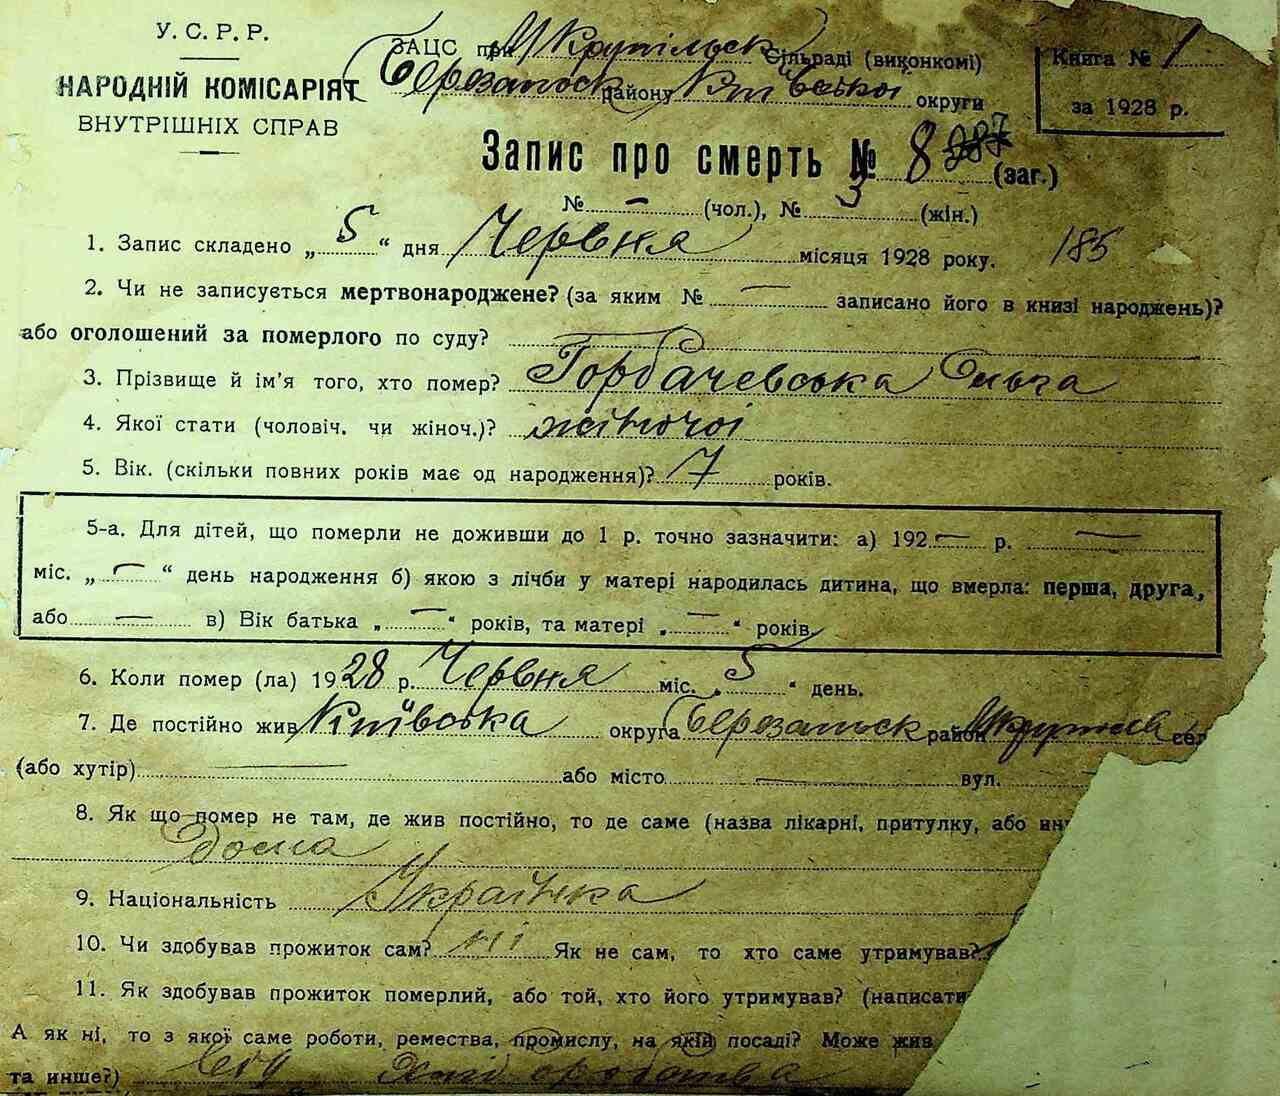 У. С. Р. Р.
НАРОДНІЙ КОМІСАРІЯТ
ВНУТРІШНІХ СПРАВ
ЗАЦС при Сільраді (виконкомі)
району Київської округи
Книга № 1
за 1928 р.
Запис про смерть № 8 (заг.)
№ — (чол.), № 3 (жін.)
1. Запис складено „ 5 “ дня Червня місяця 1928 року. 185
2. Чи не записується мертвонароджене? (за яким № — записано його в книзі народжень)?
або оголошений за померлого по суду? —
3. Прізвище й ім'я того, хто помер? Горбачевська Ольга
4. Якої стати (чоловіч. чи жіноч.)? жіночої
5. Вік. (скільки повних років має од народження)? 7 років.
5-а. Для дітей, що померли не доживши до 1 р. точно зазначити: а) 192 — р. —
міс. „ — “ день народження б) якою з лічби у матері народилась дитина, що вмерла: перша, друга,
або — в) Вік батька „ — “ років, та матері „ — “ років
6. Коли помер (ла) 1928 р. Червня міс. „ 5 “ день.
7. Де постійно жив Київська округа район сел
(або хутір) — або місто — вул.
8. Як що помер не там, де жив постійно, то де саме (назва лікарні, притулку, або ин
Дома
9. Національність Українка
10. Чи здобував прожиток сам? ні Як не сам, то хто саме утримував?
11. Як здобував прожиток померлий, або той, хто його утримував? (написати
А як ні, то з якої саме роботи, ремества, промислу, на якій посаді? Може жив
та инше?)